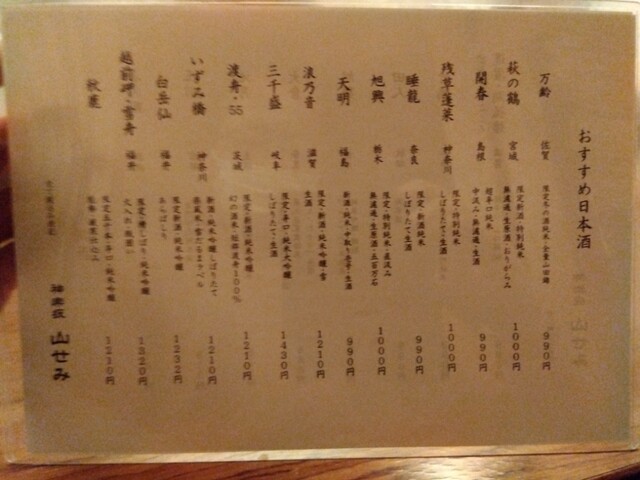 おすすめ日本酒
万齢 佐賀 限定冬の酒純米・全量山田錦 990円
萩の鶴 宮城 限定新酒・特別純米 無濾過・生原酒・おりがらみ 1000円
開春 島根 超辛口純米 中汲み・無濾過・生酒 990円
残草蓬莱 神奈川 限定・特別純米 しぼりたて・生酒 1000円
睡龍 奈良 限定・新酒純米 しぼりたて・生酒 990円
旭興 栃木 限定・特別純米・直汲み 無濾過・生原酒・五百万石 1000円
天明 福島 新酒・純米・中取り・生酒 990円
浪乃音 滋賀 限定・新酒・純米吟醸・雪 生酒 1210円
三千盛 岐阜 限定・辛口・純米大吟醸 しぼりたて・生酒 1430円
渡舟・55 茨城 限定・新酒・純米吟醸 幻の酒米・短稈渡舟100% 1210円
いずみ橋 神奈川 新酒・純米吟醸しぼりたて 雪だるまラベル 1210円
白岳仙 福井 限定・新酒・純米吟醸 あらばしり 1232円
越前岬・雪舟 福井 限定・槽しぼり・純米吟醸 1320円
限定五十本・辛口・純米吟醸 1210円
神楽坂 山せみ